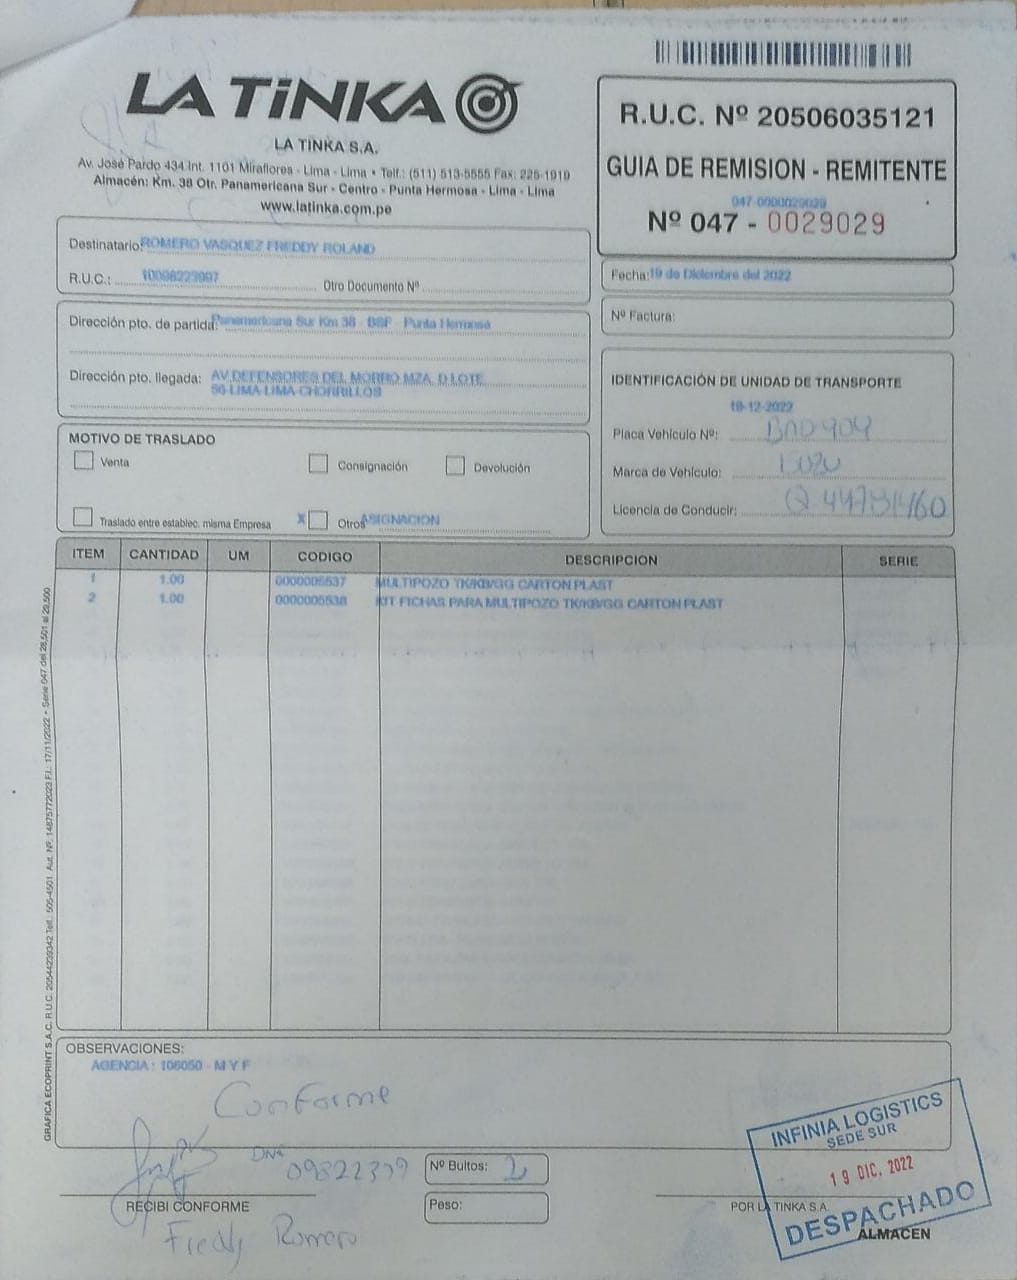 LA TiNKA
LA TINKA S.A.
Av. José Pardo 434 Int. 1101 Miraflores - Lima - Lima • Telf.: (511) 513-5555 Fax: 225-1919
Almacén: Km. 38 Otr. Panamericana Sur - Centro - Punta Hermosa - Lima - Lima
www.latinka.com.pe
R.U.C. Nº 20506035121
GUIA DE REMISION - REMITENTE
047-0000029029
Nº 047 - 0029029
Destinatario: ROMERO VASQUEZ FREDDY ROLAND
R.U.C.: 10098223997
Otro Documento Nº
Fecha: 19 de Diciembre del 2022
Nº Factura:
Dirección pto. de partida: Panamericana Sur Km 38 - BSF - Punta Hermosa
Dirección pto. llegada: AV.DEFENSORES DEL MORRO MZA. D LOTE.
56-LIMA-LIMA-CHORRILLOS
IDENTIFICACIÓN DE UNIDAD DE TRANSPORTE
19-12-2022
Placa Vehículo Nº: BAD904
Marca de Vehículo: ISUZU
Licencia de Conducir: Q 44731460
MOTIVO DE TRASLADO
Venta
Consignación
Devolución
Traslado entre establec. misma Empresa
X Otros ASIGNACION
ITEM CANTIDAD UM CODIGO DESCRIPCION SERIE
1 1.00 0000005537 MULTIPOZO TK/KB/GG CARTON PLAST
2 1.00 0000005538 KIT FICHAS PARA MULTIPOZO TK/KB/GG CARTON PLAST
GRAFICA ECOPRINT S.A.C. R.U.C. 20544239342 Telf.: 505-4501. Aut. Nº: 14875772023 F.I.: 17/11/2022 - Serie 047 del 28,501 al 29,500
OBSERVACIONES:
AGENCIA : 106050 - M Y F
Conforme
DNI 09822399
RECIBI CONFORME
Freddy Romero
Nº Bultos: 2
Peso:
POR LA TINKA S.A.
ALMACEN
INFINIA LOGISTICS
SEDE SUR
19 DIC. 2022
DESPACHADO